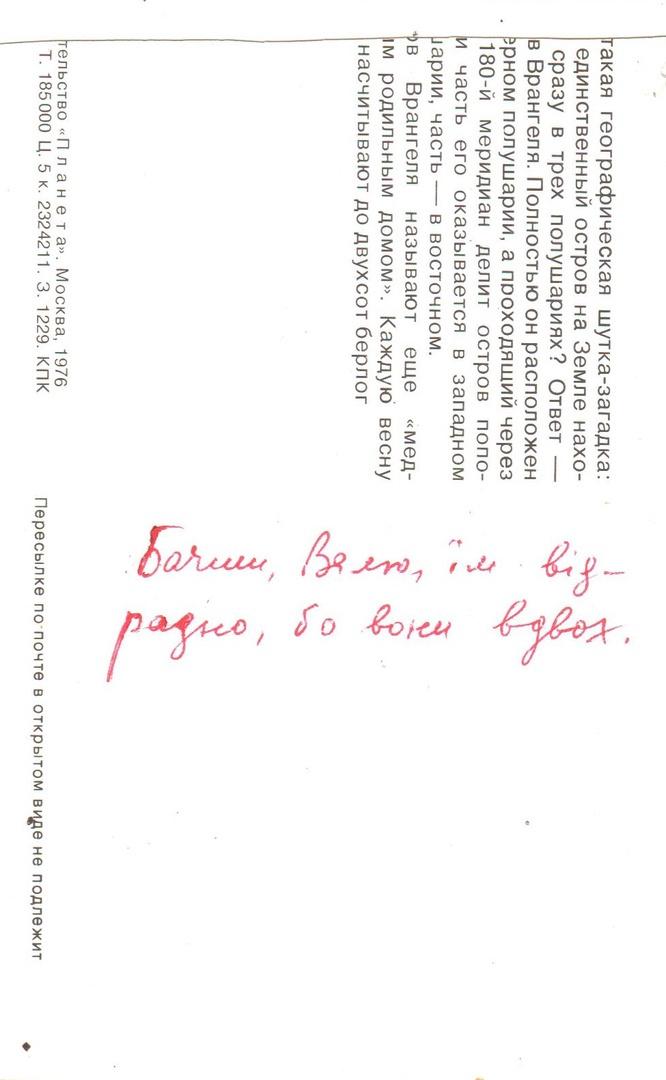 такая географическая шутка-загадка:
единственный остров на Земле нахо-
сразу в трех полушариях? Ответ —
в Врангеля. Полностью он расположен
ерном полушарии, а проходящий через
180-й меридиан делит остров попо-
и часть его оказывается в западном
шарии, часть — в восточном.
ов Врангеля называют еще «мед-
им родильным домом». Каждую весну
насчитывают до двухсот берлог
тельство «Планета». Москва, 1976
Т. 185 000 Ц. 5 к. 2324211. З. 1229. КПК
Пересылке по почте в открытом виде не подлежит
Бачиш, Валю, їм від-
радно, бо вони вдвох.